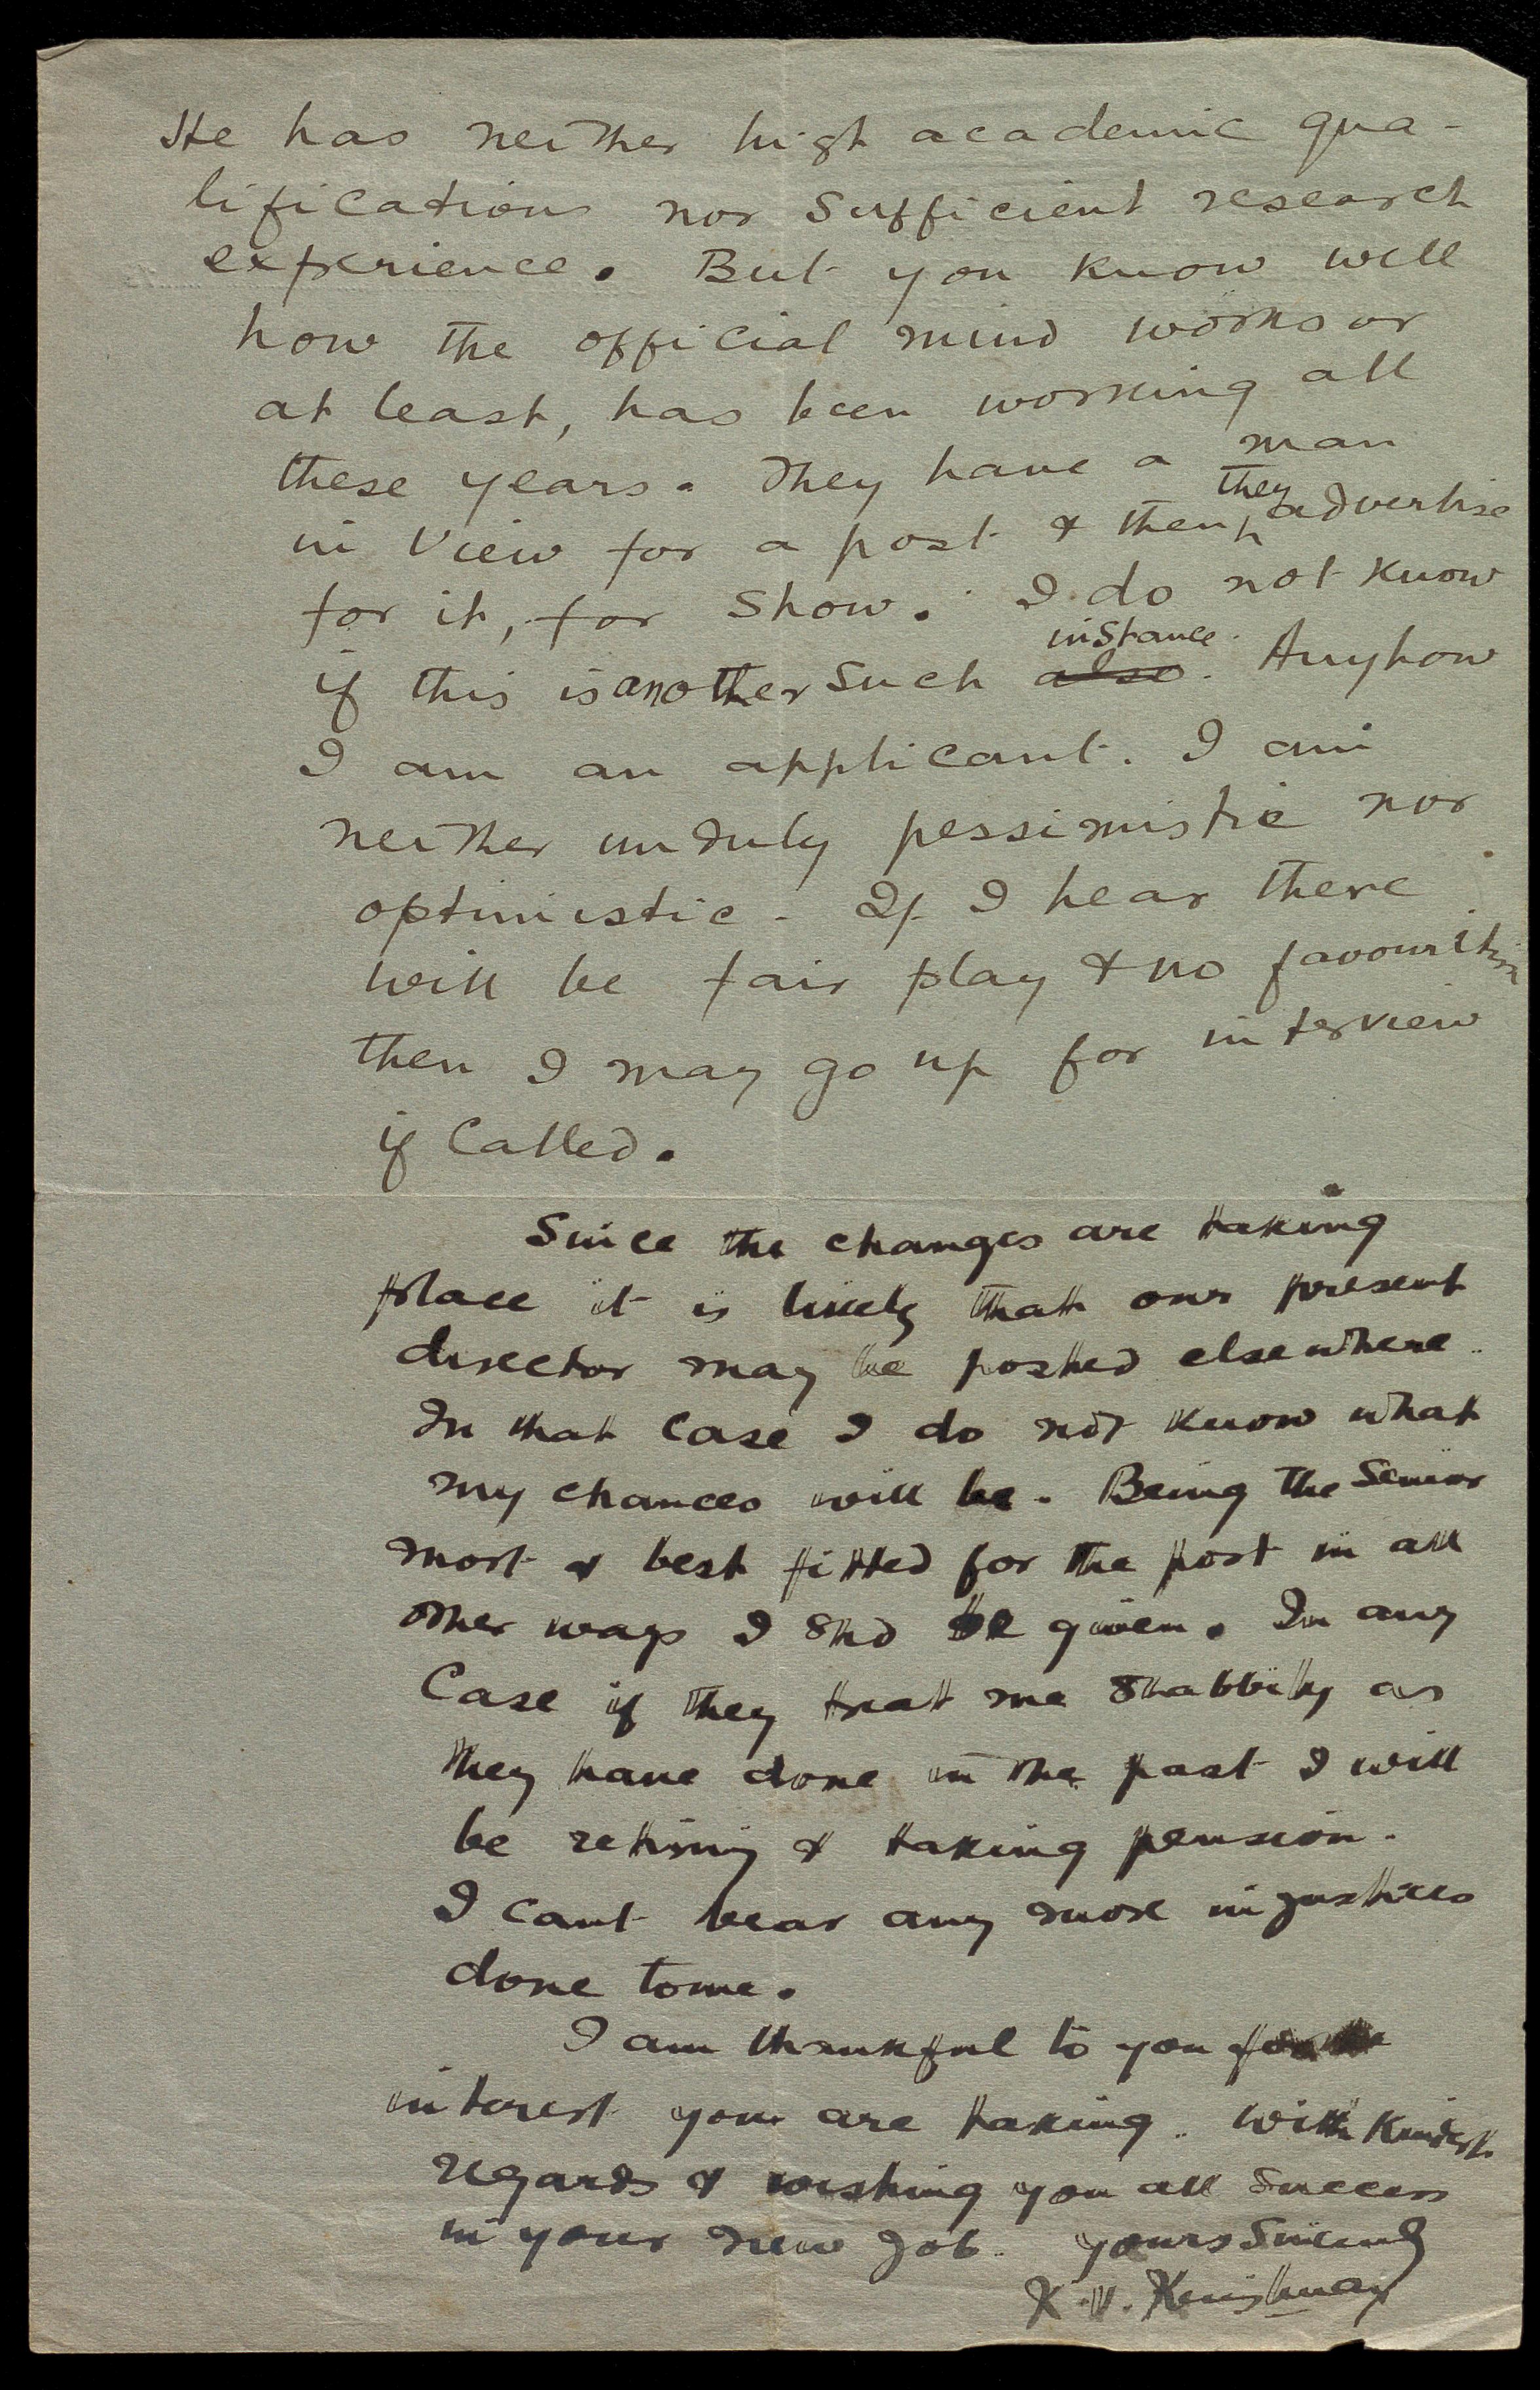 He has neither high academic qua-
lifications nor sufficient research
experience. But you know well
how the official mind works or
at least, has been working all
these years. They have a man
in view for a post & then they advertise
for it, for show. I do not know
if this is another such also instance. Anyhow
I am an applicant. I am
neither unduly pessimistic nor
optimistic. If I hear there
will be fair play & no favouritism
then I may go up for interview
if called.
Since the changes are taking
place it is likely that our present
director may be posted elsewhere.
In that case I do not know what
my chances will be. Being the senior
most & best fitted for the post in all
other ways I shd be given. In any
case if they treat me shabbily as
they have done in the past I will
be retiring & taking pension.
I cant bear any more injustices
done to me.
I am thankful to you for the
interest you are taking. With kindest
regards & wishing you all success
in your new job. Yours Sincerely
K.V. Krishnan